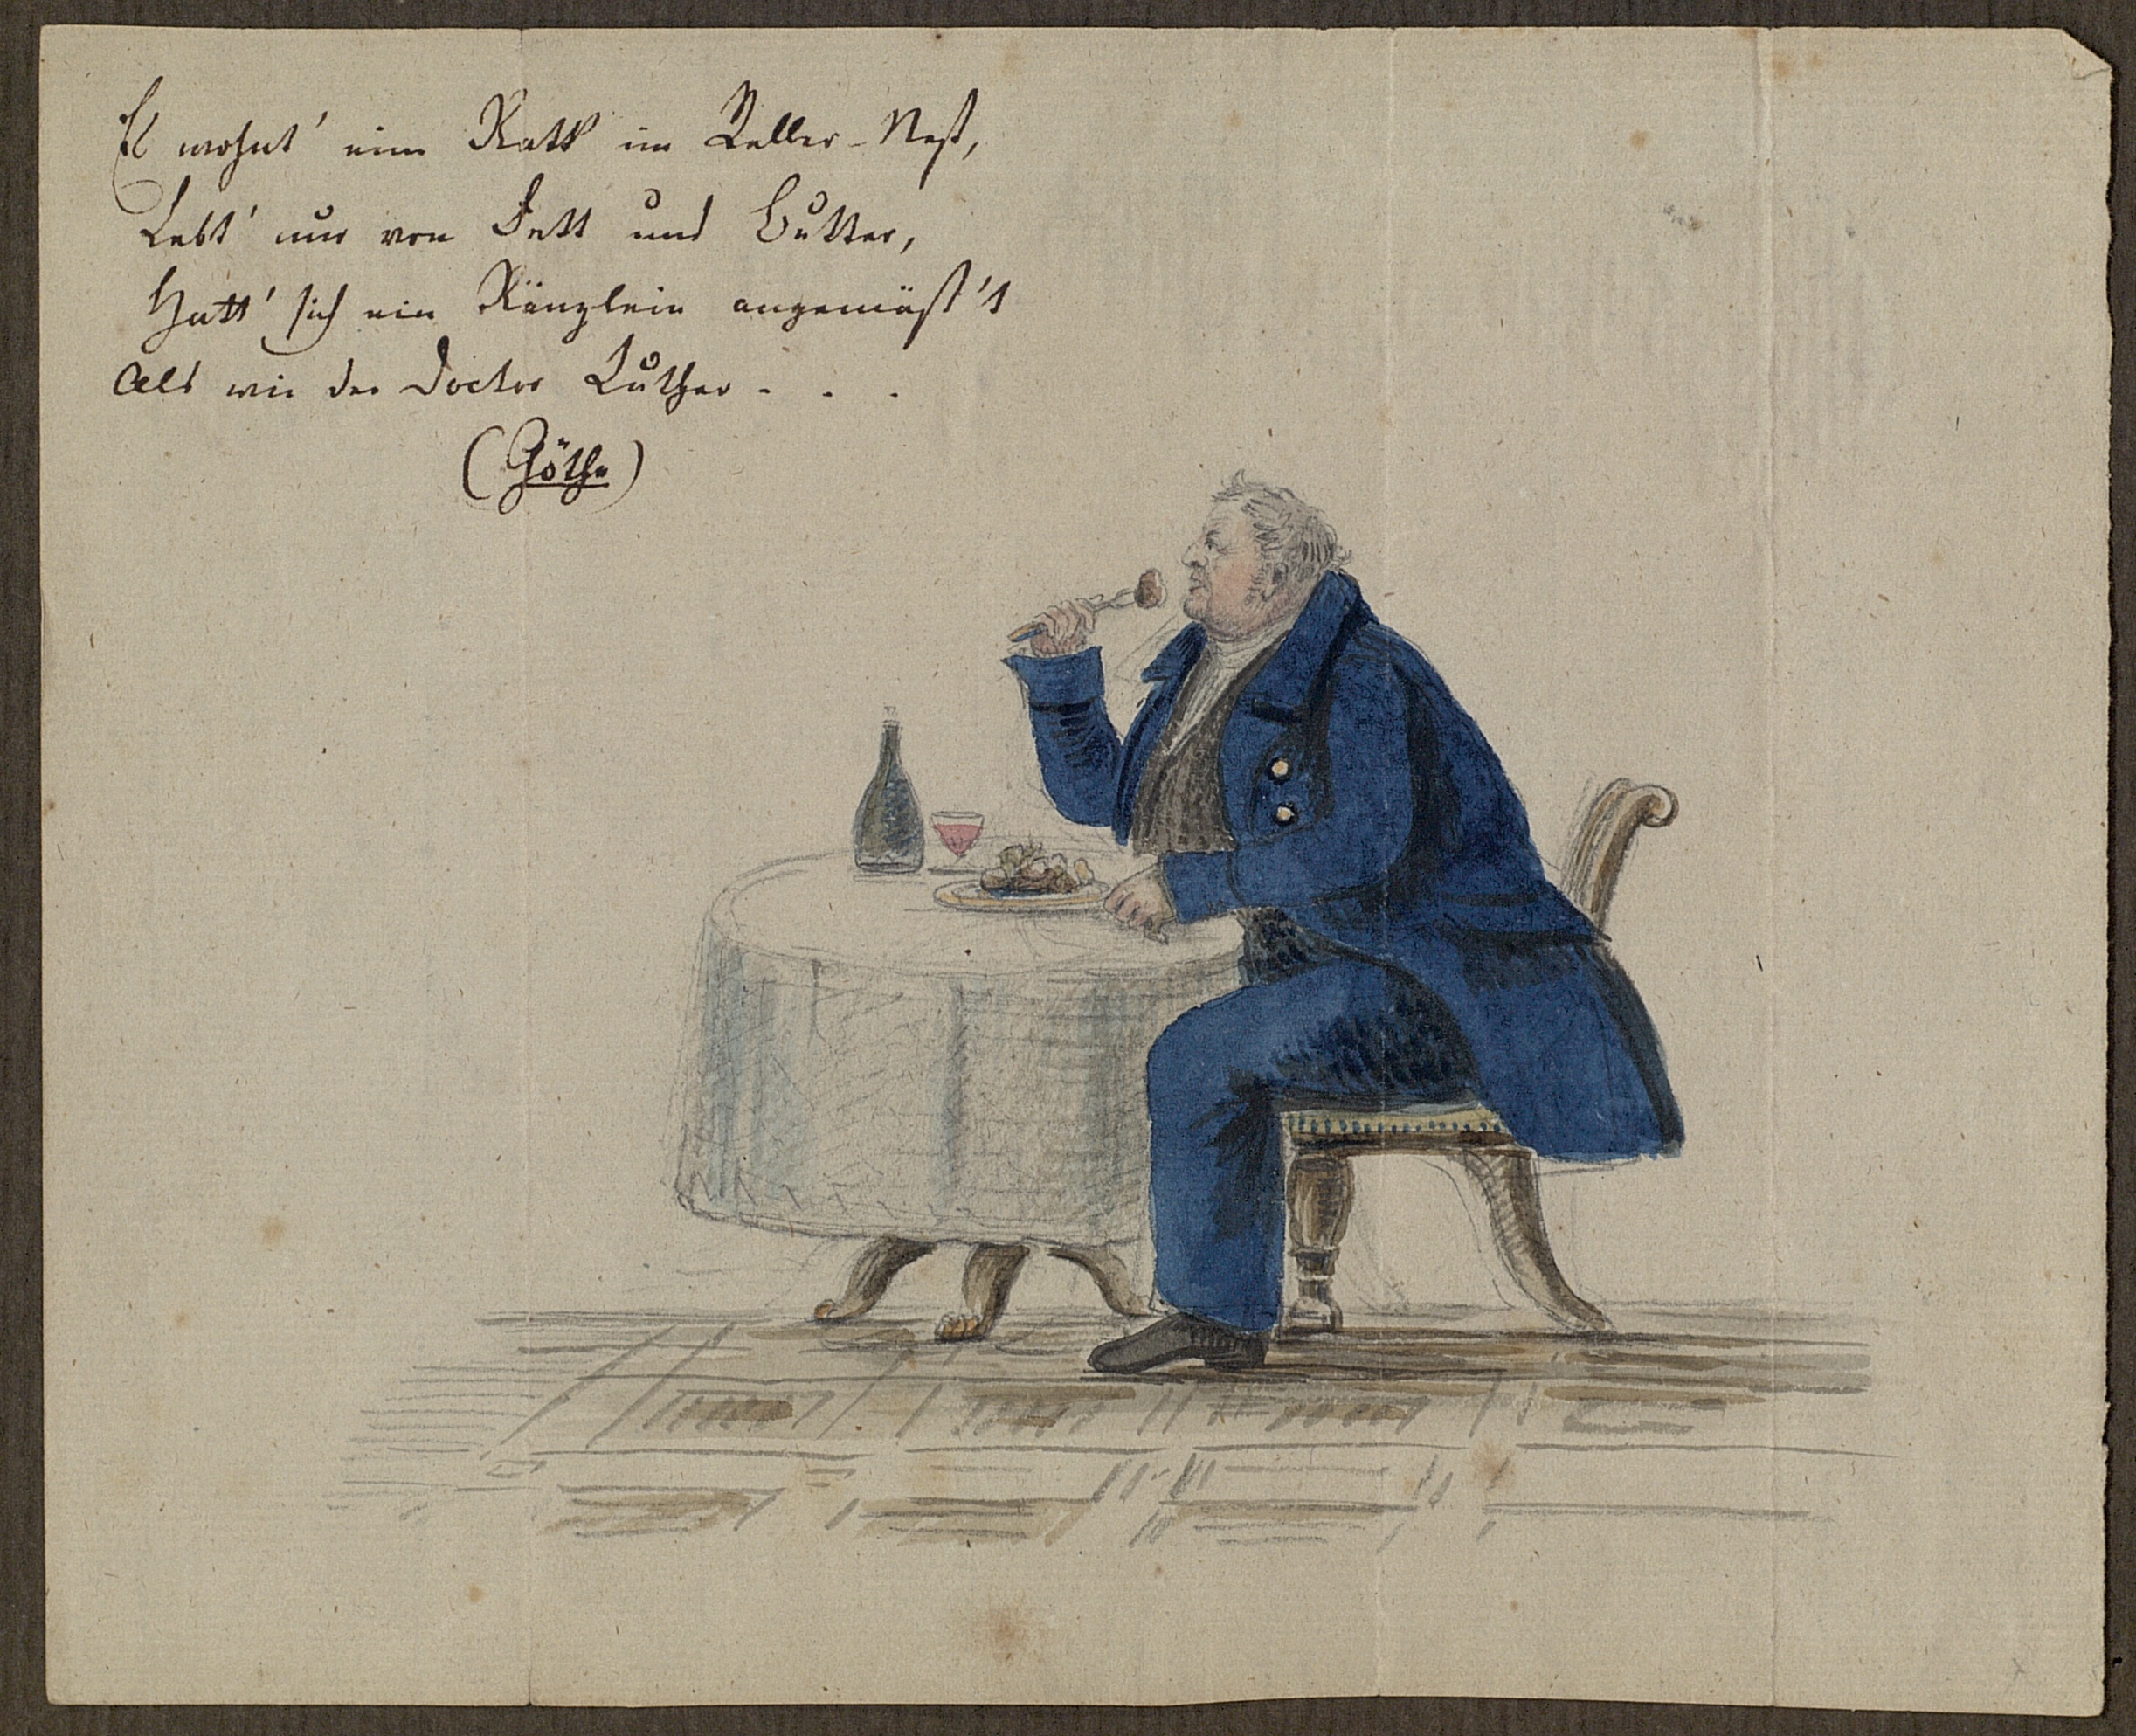 Es wohnt' eine Ratt' im Keller-Nest,
Lebt' nur von Fett und Butter,
Hatt' sich ein Ränzlein angemäst't
Als wie der Doctor Luther - . .
(Göthe)